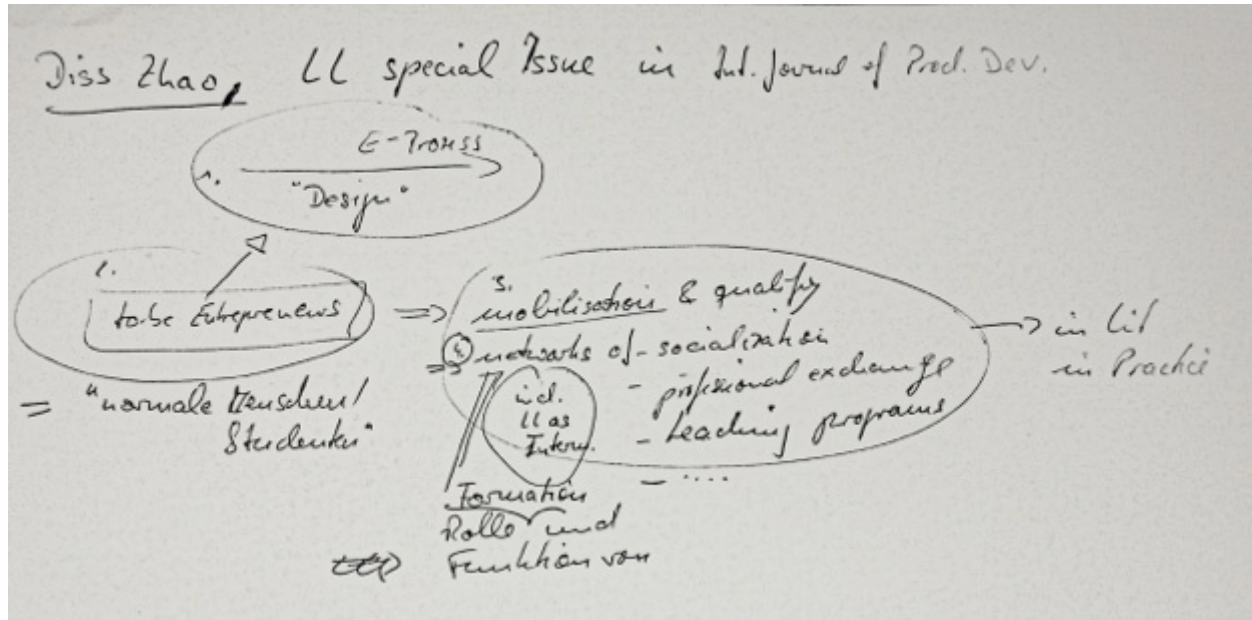 Diss Zhao, LL special Issue in Int. Journal of Prod. Dev.
E-Prozess
1.
"Design"
2.
to-be Entrepreneurs
= "normale Menschen/
Studenten"
3.
mobilisation & qualify
4. networks of - socialization
- professional exchange
- teaching programs
- ....
incl.
LL as
Interm.
Formation
Rolle und
Funktion von
in Lit
in Practice